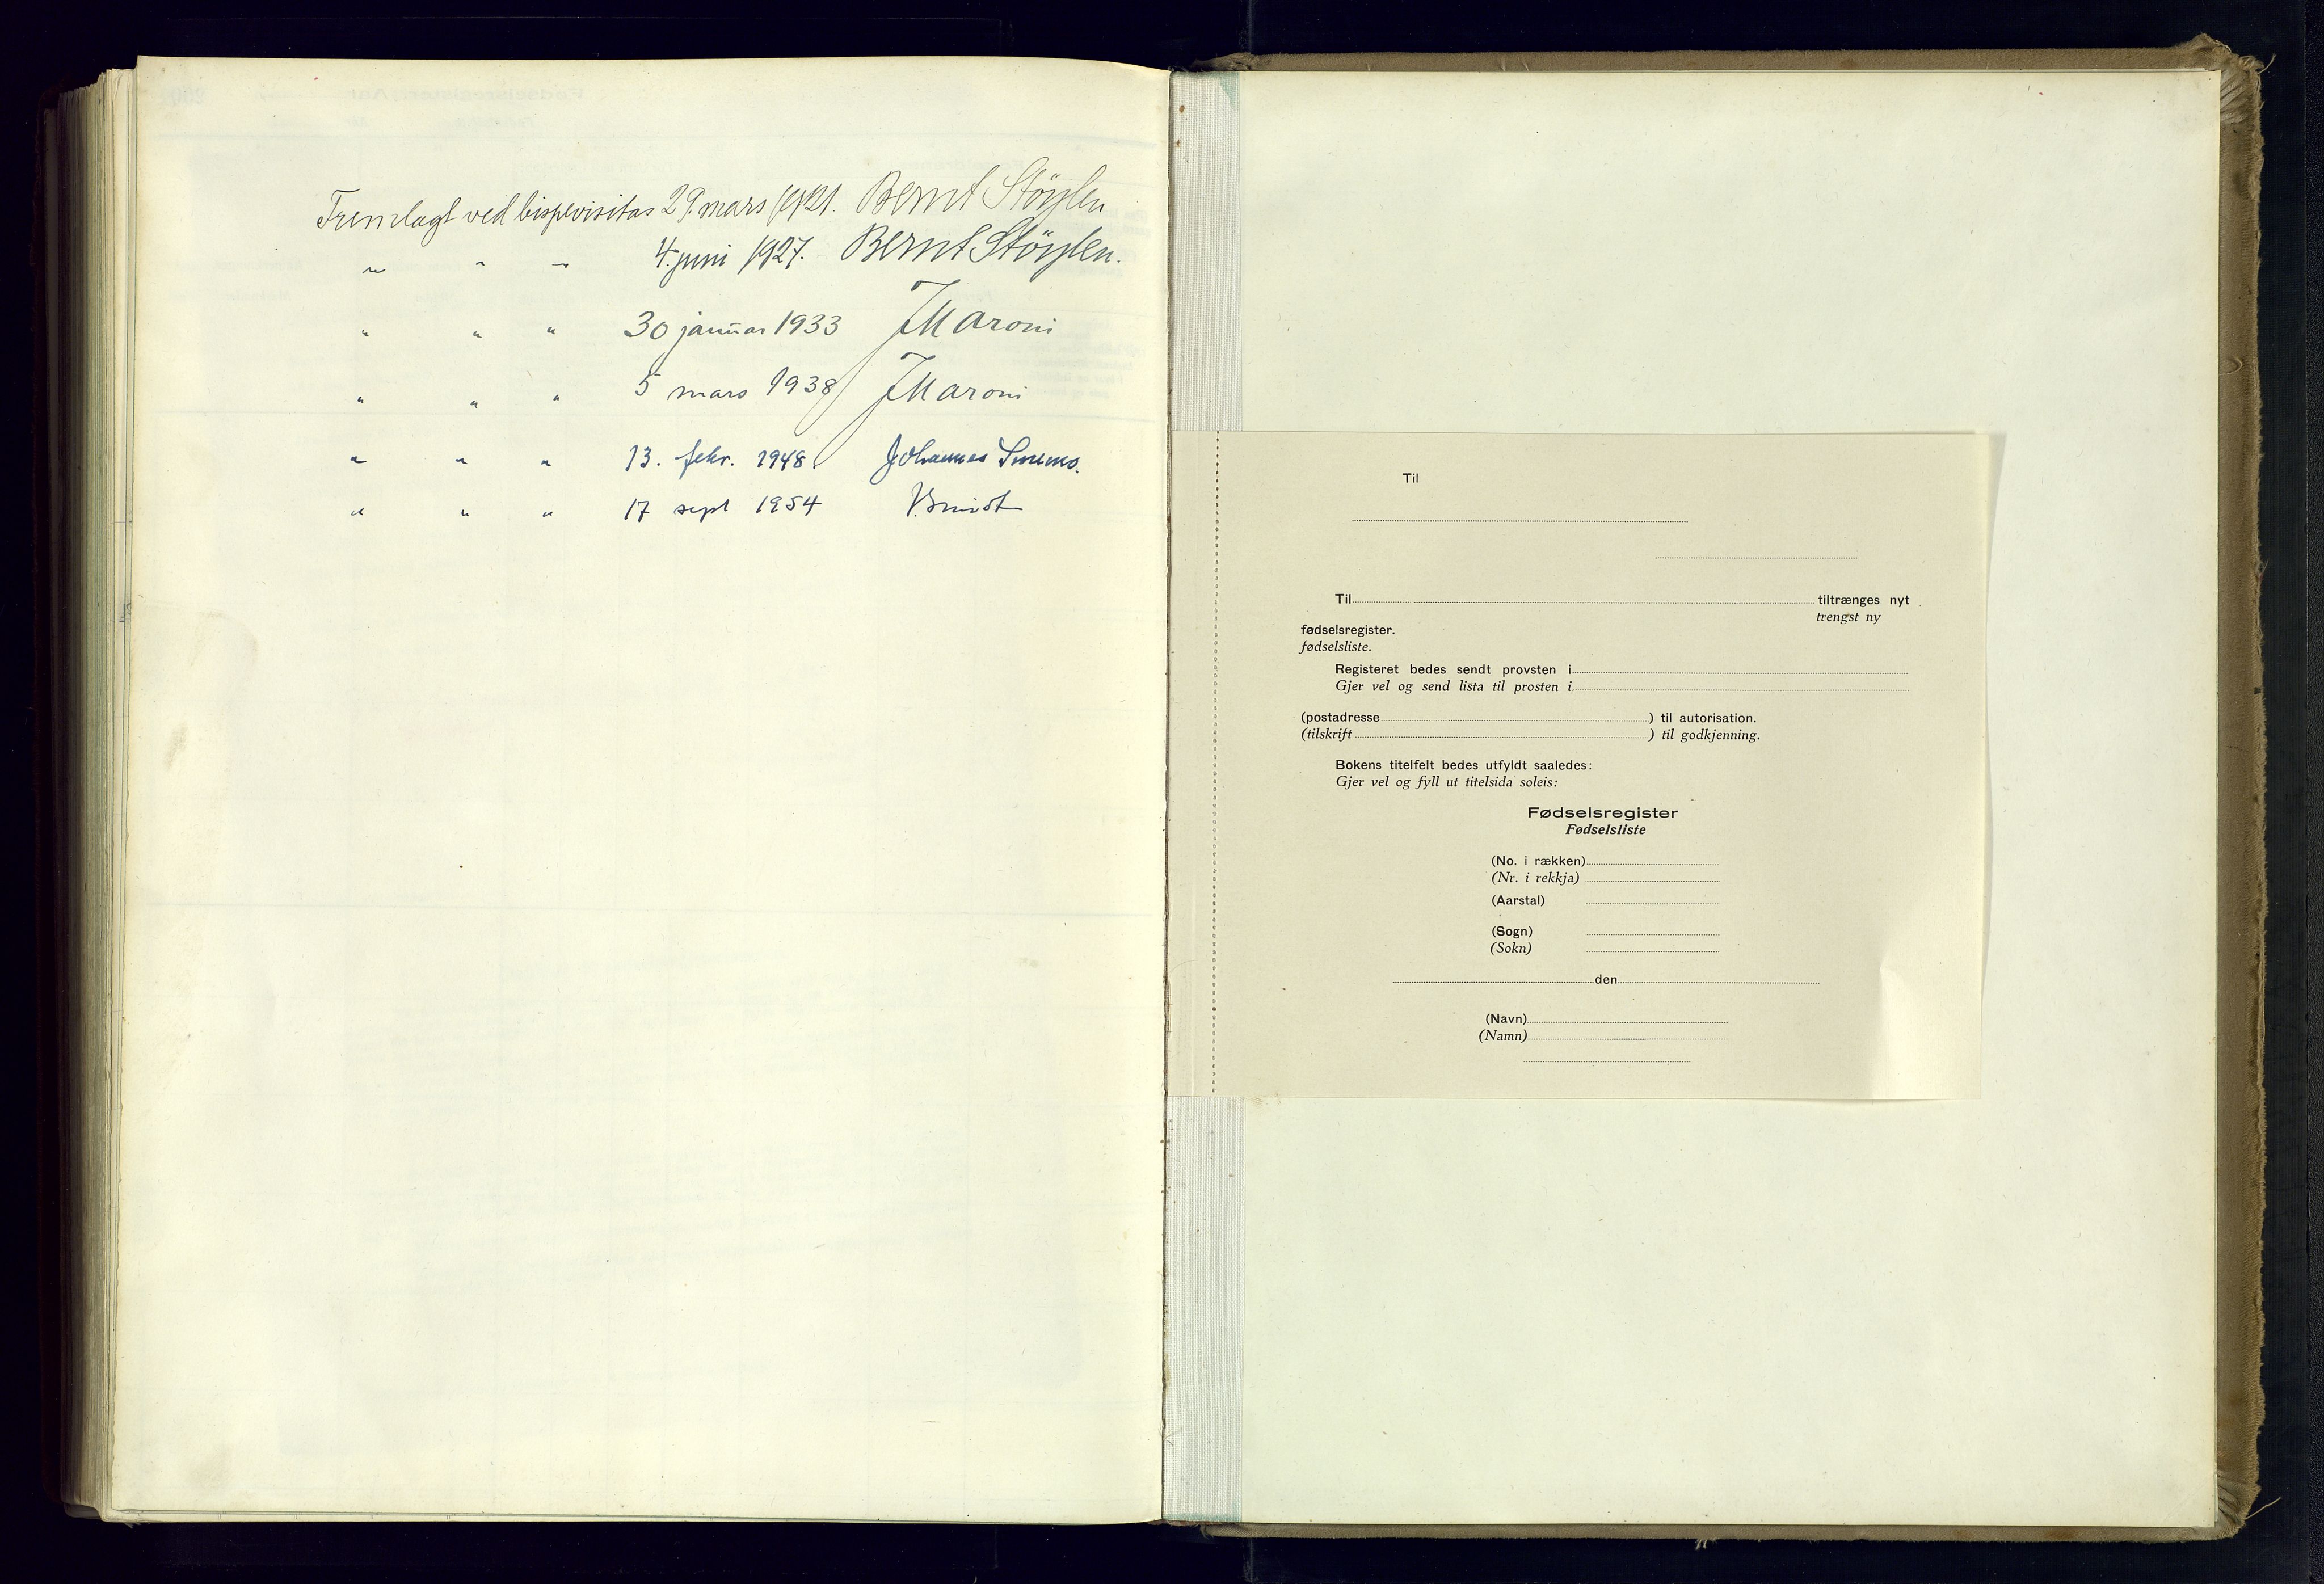 Fremlagt ved bispevisitas 29. mars 1921. Bernt Støylen
" " " 4. juni 1927. Bernt Støylen.
" " " 30 januar 1933 JMaroni
" " " 5 mars 1938 JMaroni
" " " 13. febr. 1948. Johannes Smemo.
" " " 17 sept 1954
Til
Til tiltrænges nyt
trengst ny
fødselsregister.
fødselsliste.
Registeret bedes sendt provsten i
Gjer vel og send lista til prosten i
(postadresse ) til autorisation.
(tilskrift ) til godkjenning.
Bokens titelfelt bedes utfyldt saaledes:
Gjer vel og fyll ut titelsida soleis:
Fødselsregister
Fødselsliste
(No. i rækken)
(Nr. i rekkja)
(Aarstal)
(Sogn)
(Sokn)
den
(Navn)
(Namn)